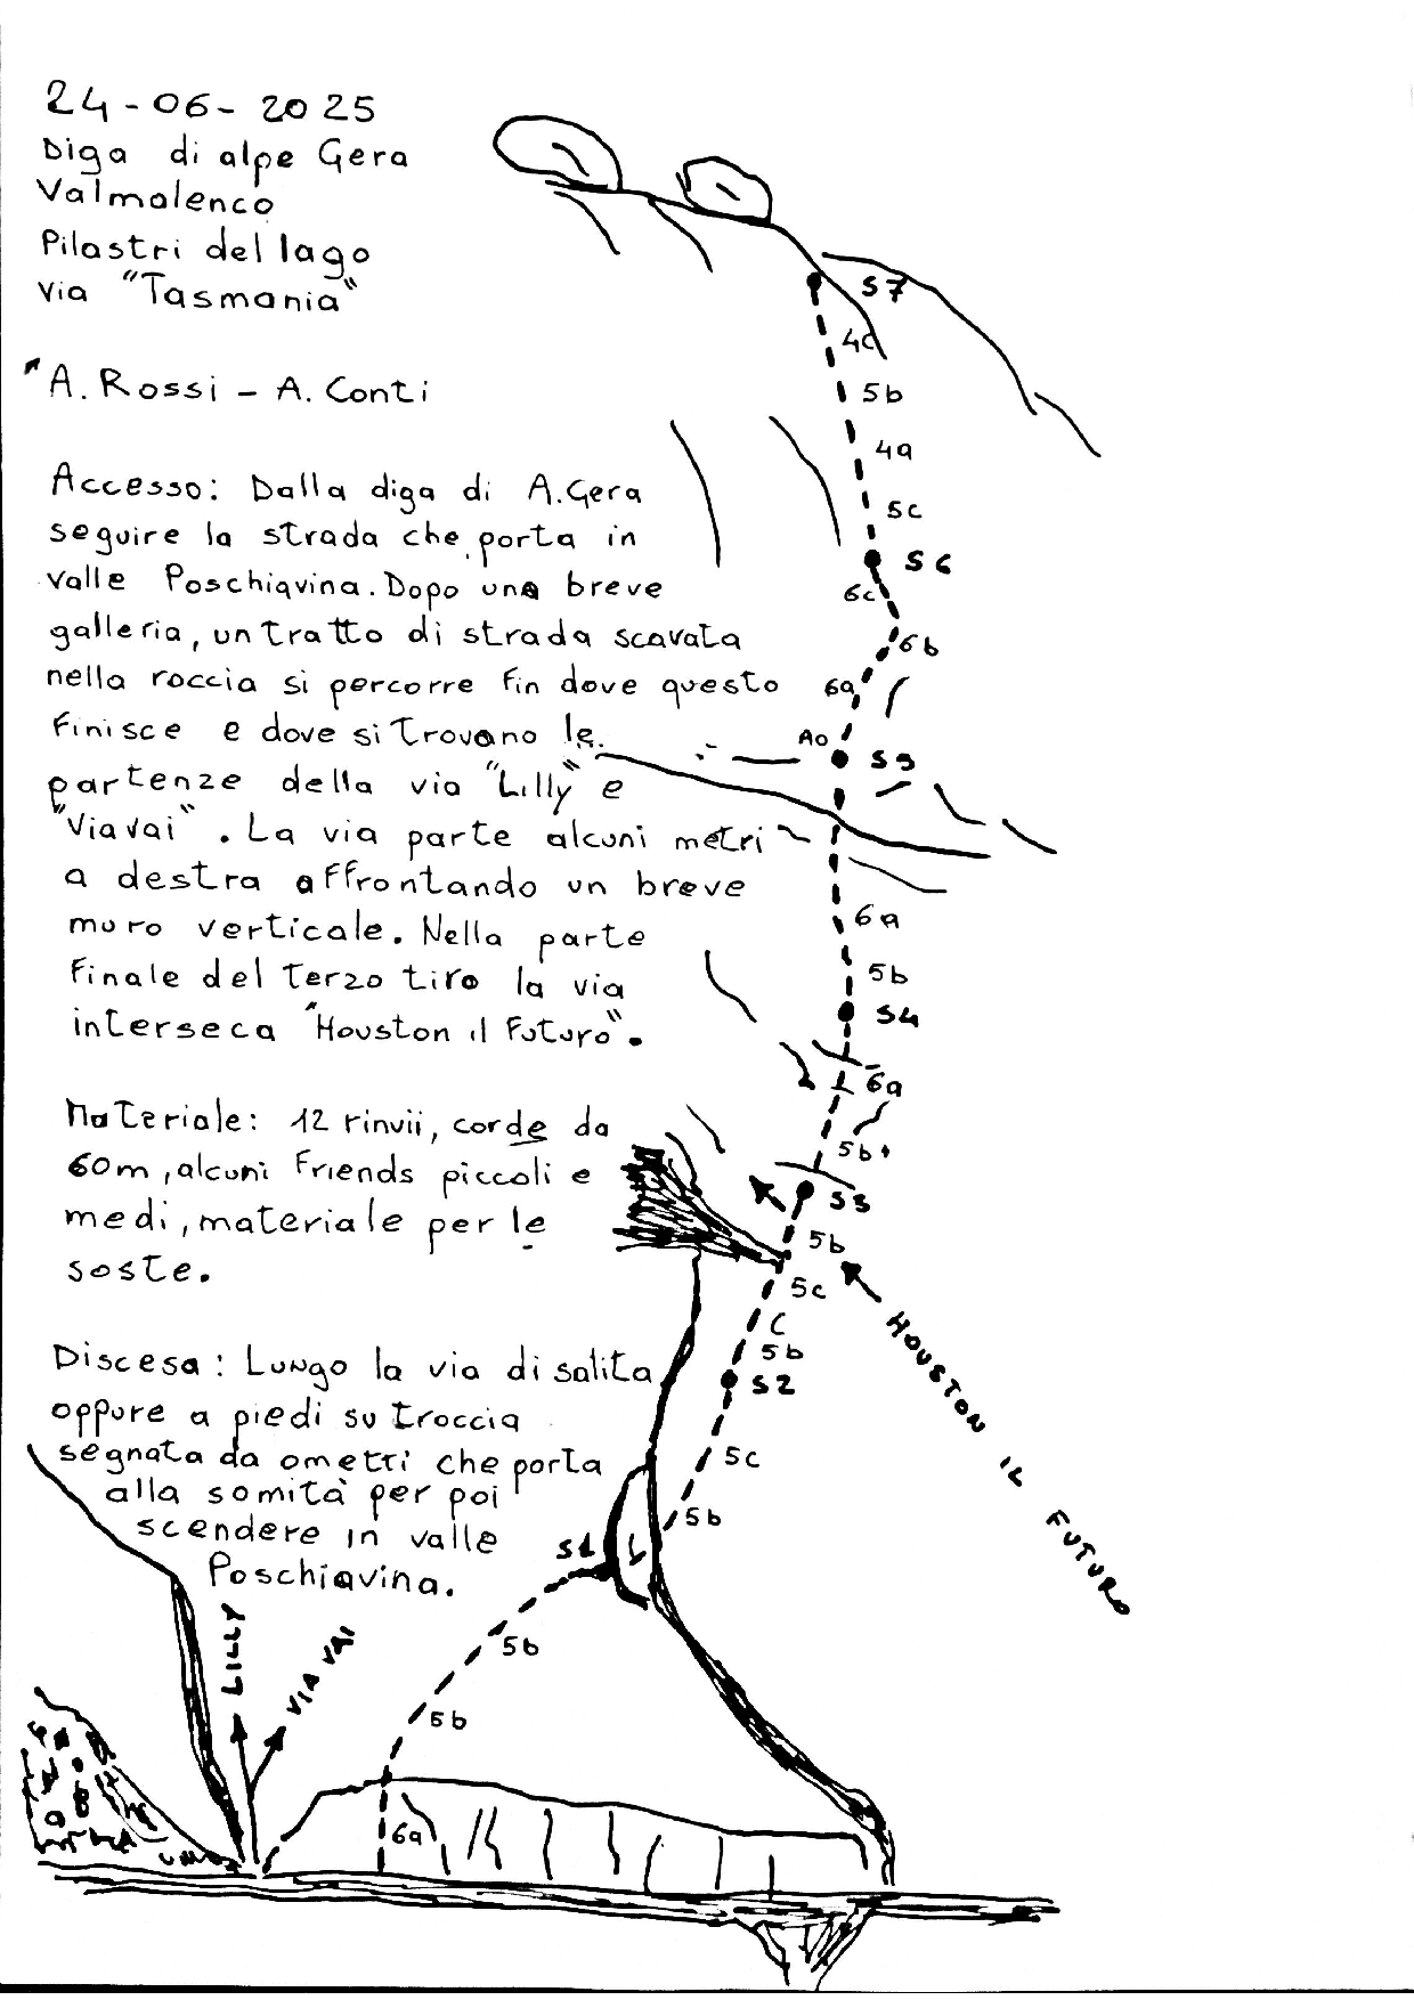 24-06-2025
Diga di alpe Gera
Valmalenco
Pilastri del lago
via "Tasmania"
A. Rossi - A. Conti
Accesso: Dalla diga di A.Gera
seguire la strada che porta in
valle Poschiavina. Dopo una breve
galleria, un tratto di strada scavata
nella roccia si percorre fin dove questo
finisce e dove si trovano le
partenze della via "Lilly" e
"Viavai". La via parte alcuni metri
a destra affrontando un breve
muro verticale. Nella parte
finale del terzo tiro la via
interseca "Houston il Futuro".
Materiale: 12 rinvii, corde da
60m, alcuni Friends piccoli e
medi, materiale per le
soste.
Discesa: Lungo la via di salita
oppure a piedi su troccia
segnata da ometti che porta
alla somità per poi
scendere in valle
Poschiavina.
S7
4c
5b
4a
5c
S6
6c
6b
6a
A0
S5
6a
5b
S4
6a
5b+
S3
5b
5c
C
5b
S2
HOUSTON IL FUTURO
5c
5b
S1
5b
5b
6a
LILLY
VIA VAI